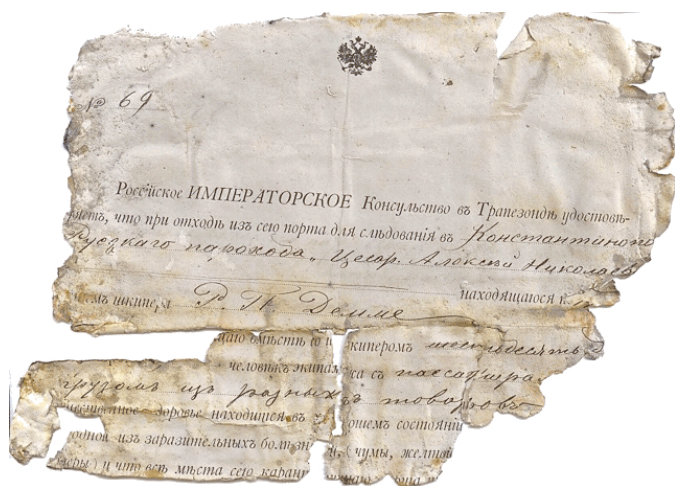 № 69
Россійское ИМПЕРАТОРСКОЕ Консульство въ Трапезондѣ удостовѣ-
ряетъ, что при отходѣ изъ сего порта для слѣдованія въ Константиноп
Русскаго парохода „Цесар. Алексѣй Николаев
находящагося
шкипера Р. К. Демме
вмѣстѣ со шкиперомъ шестьдесятъ
человѣкъ экипажа съ пассажира
грузомъ изъ разныхъ товаровъ
здоровье находится въ состояніи
одной изъ заразительныхъ болѣзн (чумы, желтой
и что всѣ мѣста сего